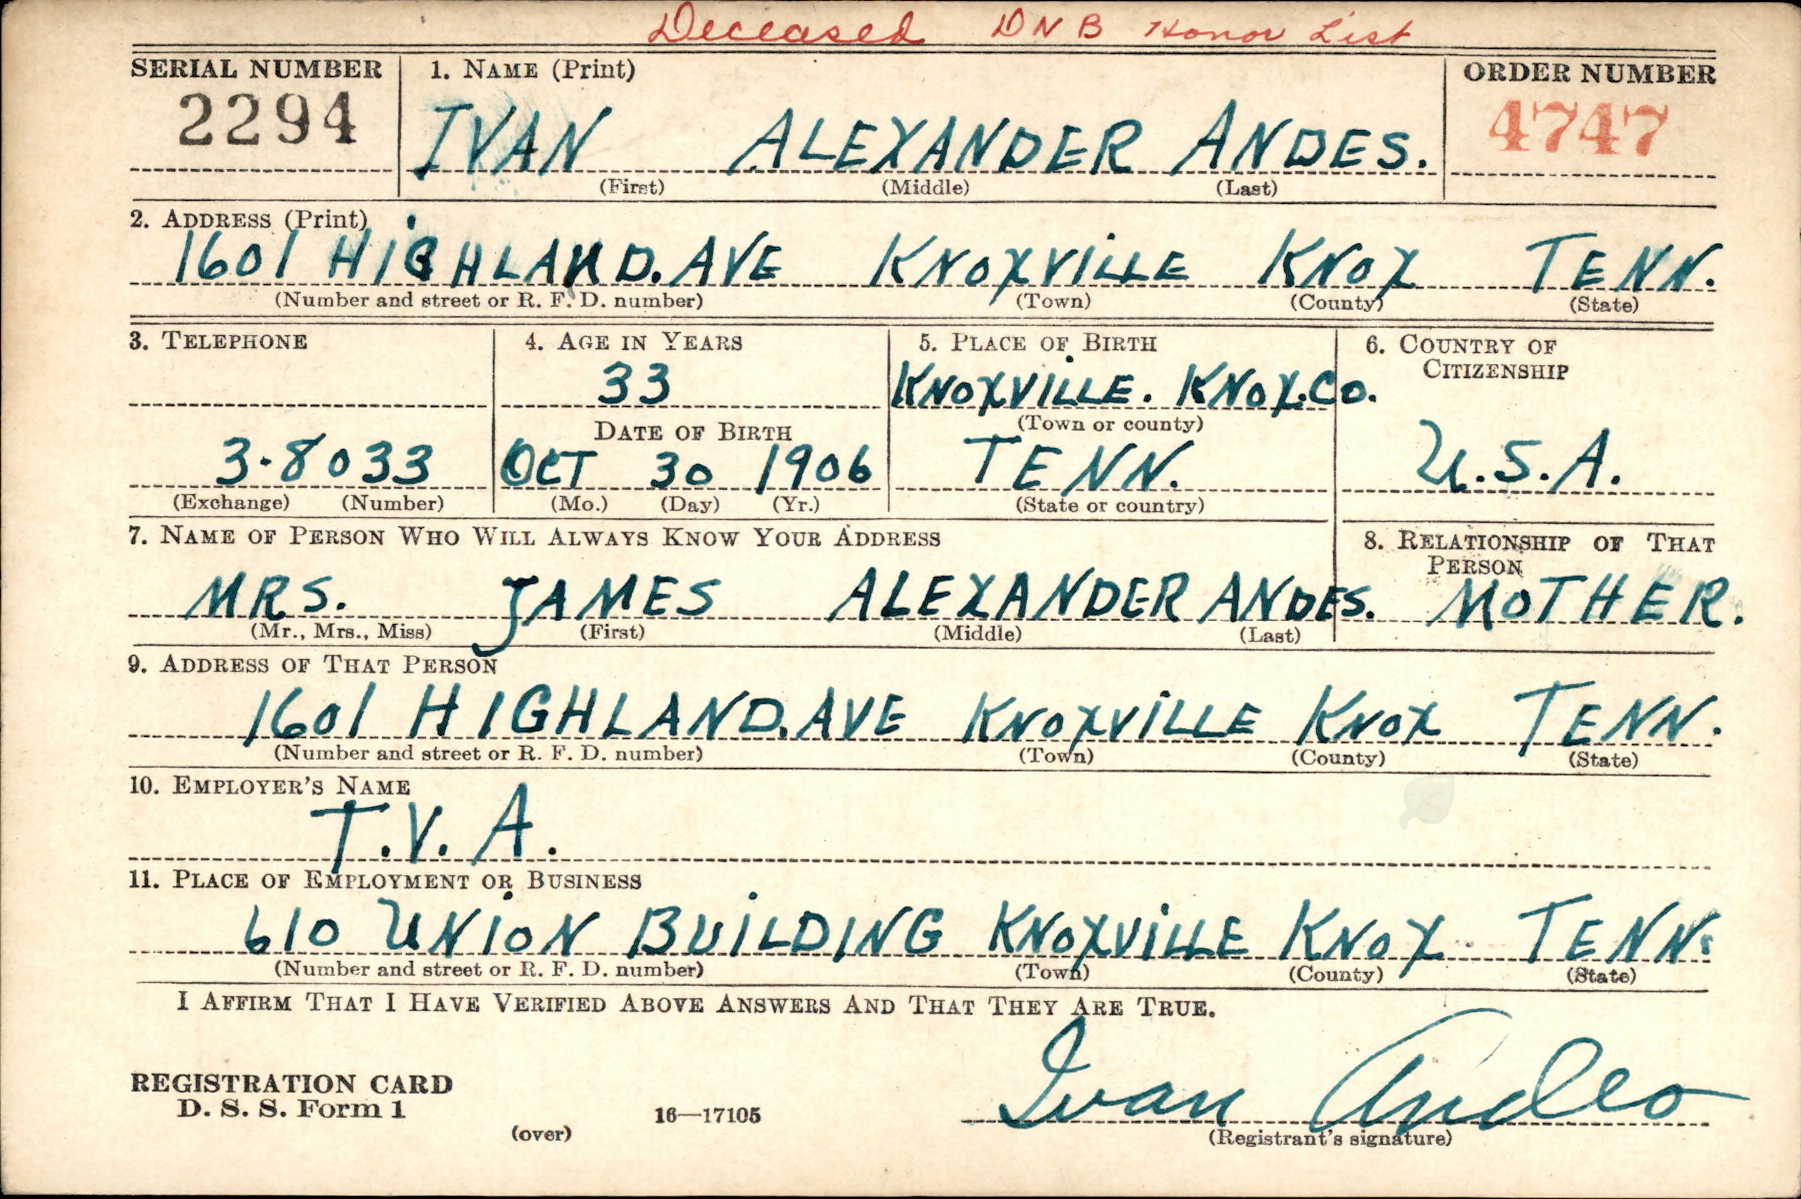 Deceased DNB Honor List
SERIAL NUMBER 1. NAME (Print) ORDER NUMBER
2294 IVAN ALEXANDER ANDES. 4747
(First) (Middle) (Last)
2. ADDRESS (Print)
1601 HIGHLAND. AVE KNOXVILLE KNOX TENN.
(Number and street or R. F. D. number) (Town) (County) (State)
3. TELEPHONE 4. AGE IN YEARS 5. PLACE OF BIRTH 6. COUNTRY OF
CITIZENSHIP
33 KNOXVILLE. KNOX.CO.
DATE OF BIRTH (Town or county)
3-8033 OCT 30 1906 TENN. U.S.A.
(Exchange) (Number) (Mo.) (Day) (Yr.) (State or country)
7. NAME OF PERSON WHO WILL ALWAYS KNOW YOUR ADDRESS 8. RELATIONSHIP OF THAT
PERSON
MRS. JAMES ALEXANDER ANDES. MOTHER.
(Mr., Mrs., Miss) (First) (Middle) (Last)
9. ADDRESS OF THAT PERSON
1601 HIGHLAND. AVE KNOXVILLE KNOX TENN.
(Number and street or R. F. D. number) (Town) (County) (State)
10. EMPLOYER'S NAME
T.V.A.
11. PLACE OF EMPLOYMENT OR BUSINESS
610 UNION BUILDING KNOXVILLE KNOX TENN.
(Number and street or R. F. D. number) (Town) (County) (State)
I AFFIRM THAT I HAVE VERIFIED ABOVE ANSWERS AND THAT THEY ARE TRUE.
REGISTRATION CARD
D. S. S. Form 1 Ivan Andes
(over) 16—17105 (Registrant's signature)